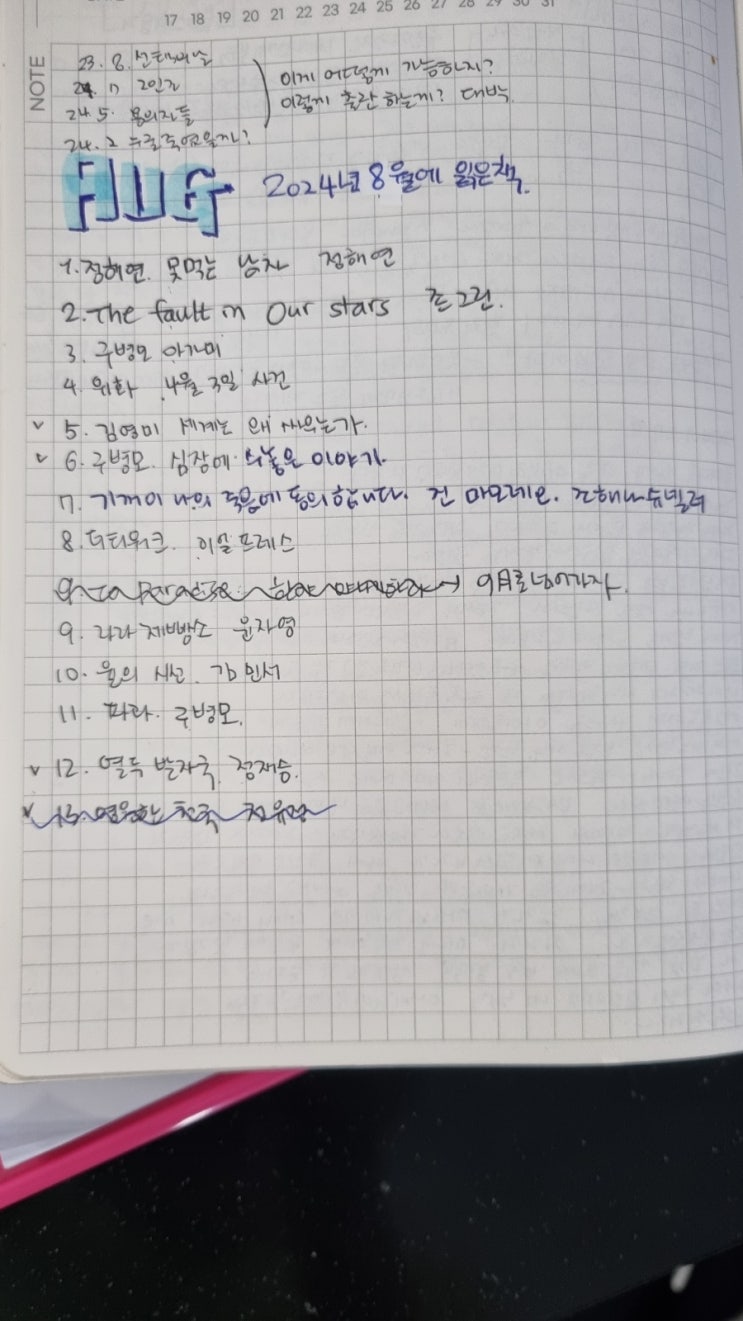 17 18 19 20 21 22 23 24 25 26 27 28 29 30 31
NOTE
23. 8. 선택의 날
24. 7 2인조
24. 5. 용의자들
24. 2 누굴 죽였을까?
이게 어떻게 가능하지?
이렇게 출간 하는게? 대박
HUG 2024년 8월에 읽은책.
1. 정해연. 못먹는 남자 정해연
2. The fault in Our stars 존그린.
3. 구병모 아가미
4. 위화 4월 3일 사건
✓ 5. 김영미 세계는 왜 싸우는가.
✓ 6. 구병모. 심장에 수놓은 이야기.
7. 기꺼이 나의 죽음에 동의합니다. 진 마모레오. 조해나 슈넬러
8. 더티워크. 이얼 프레스
9月로 넘어가자.
9. 라라 제빵소 윤자영
10. 율의 시선. 김민서
11. 파라. 구병모.
✓ 12. 열두 발자국. 정재승.
✓ 13.